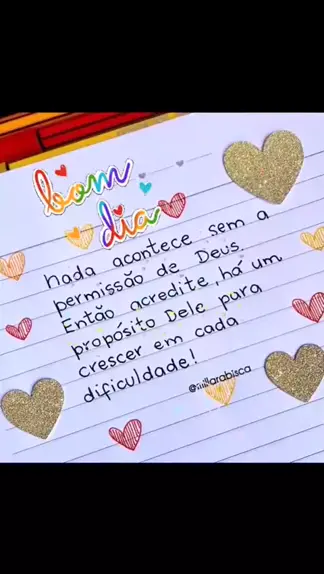 bom
dia
nada acontece sem a
permissão de Deus.
Então acredite, há um
propósito Dele para
crescer em cada
dificuldade!